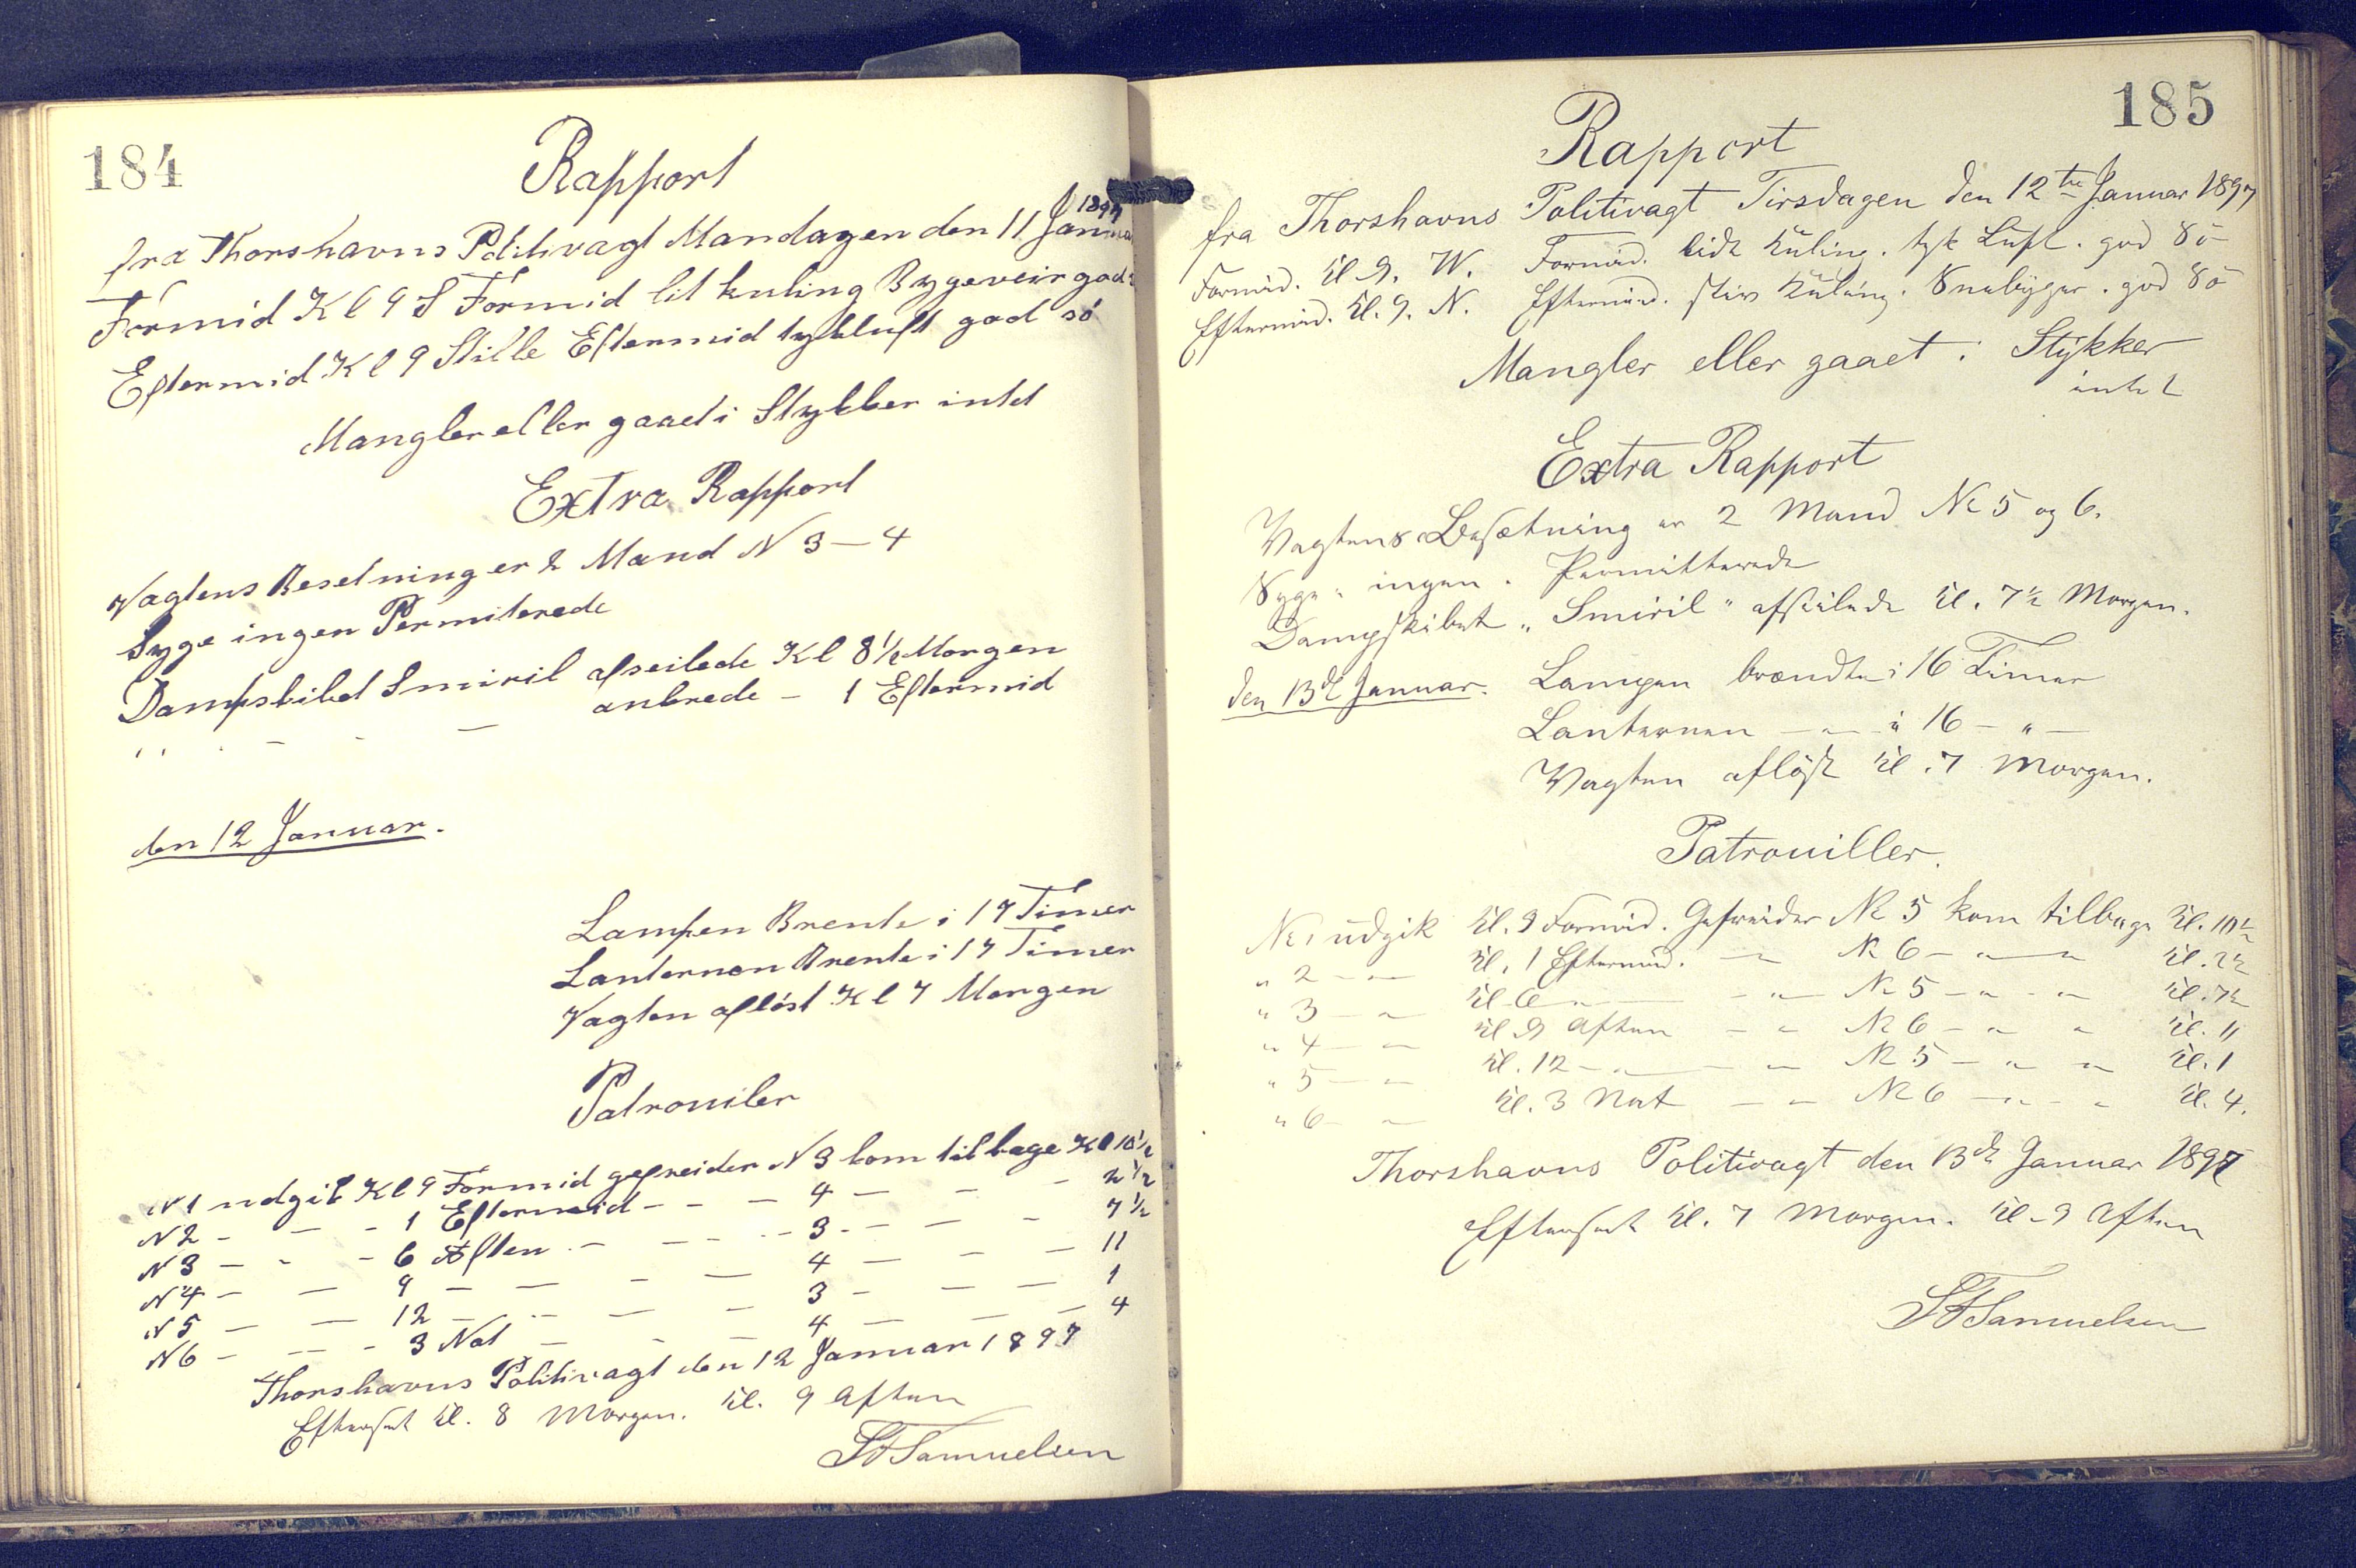 184
Rapport
1897
fra Thorshavns Politivagt Mandagen den 11 Janua
Formid Kl 9 S Formid lit kuling Bygeveir god s
Eftermid Kl 9 Stille Eftermid tykluft god sö
Mangler eller gaaet i Stykker intet
Extra Rapport
Vagtens Besetning er 2 Mand N 3 — 4
Syge ingen Permiterede
Dampskibet Smiril afseilede Kl 8 1/2 Morgen
" - - - ankrede - 1 Eftermid
den 12 Januar.
Lampen Brente i 17 Timer
Lanternen Brente i 17 Timer
Vagten aflöst Kl 7 Morgen
Patrouiler
N 1 udgik Kl 9 Formid gefreider N 3 kom tilbage Kl 10 1/2
N 2 - - - 1 Eftermid - - - 4 - - - 2 1/2
N 3 - - - 6 Aften - - - - 3 - - - - 7 1/2
N 4 - - 9 - - - - 4 - - - 11
N 5 - - 12 - - - - 3 - - - - 1
N 6 - - - 3 Nat - - - 4 - - - 4
Thorshavns Politivagt den 12 Januar 1897
Efterset Kl. 8 Morgen. Kl. 9 Aften
Samuelsen
185
Rapport
fra Thorshavns Politivagt Tirsdagen den 12te Januar 1897
Formid. Kl 9. W. Formid. lidt Kuling. tyk Luft. god Sö
Eftermid. Kl. 9. N. Eftermid. stiv Kuling. Snebyger. god Sö
Mangler eller gaaet i Stykker
intet
Extra Rapport
Vagtens Besætning er 2 Mand No 5 og 6.
Syge " ingen. Permitterede
Dampskibet "Smiril" afseilede Kl. 7½ Morgen.
den 13de Januar. Lampen brændte i 16 Timer
Lanternen - " - i 16 - " -
Vagten aflöst Kl. 7 Morgen.
Patrouiller.
No 1 udgik Kl. 9 Formid. Gefreider No 5 kom tilbage Kl. 10½
" 2 - " - Kl. 1 Eftermid. - " No 6 - " - " Kl. 2½
" 3 - " Kl 6 - " - - " - No 5 - " - " Kl. 7½
" 4 - " Kl 9 Aften - " No 6 - " " Kl. 11
" 5 - " Kl. 12 - " - " No 5 - " " Kl. 1
" 6 - " Kl. 3 Nat - " No 6 - " - " Kl. 4.
Thorshavns Politivagt den 13de Januar 1897
Efterset Kl. 7 Morgen. Kl - 9 Aften
Samuelsen